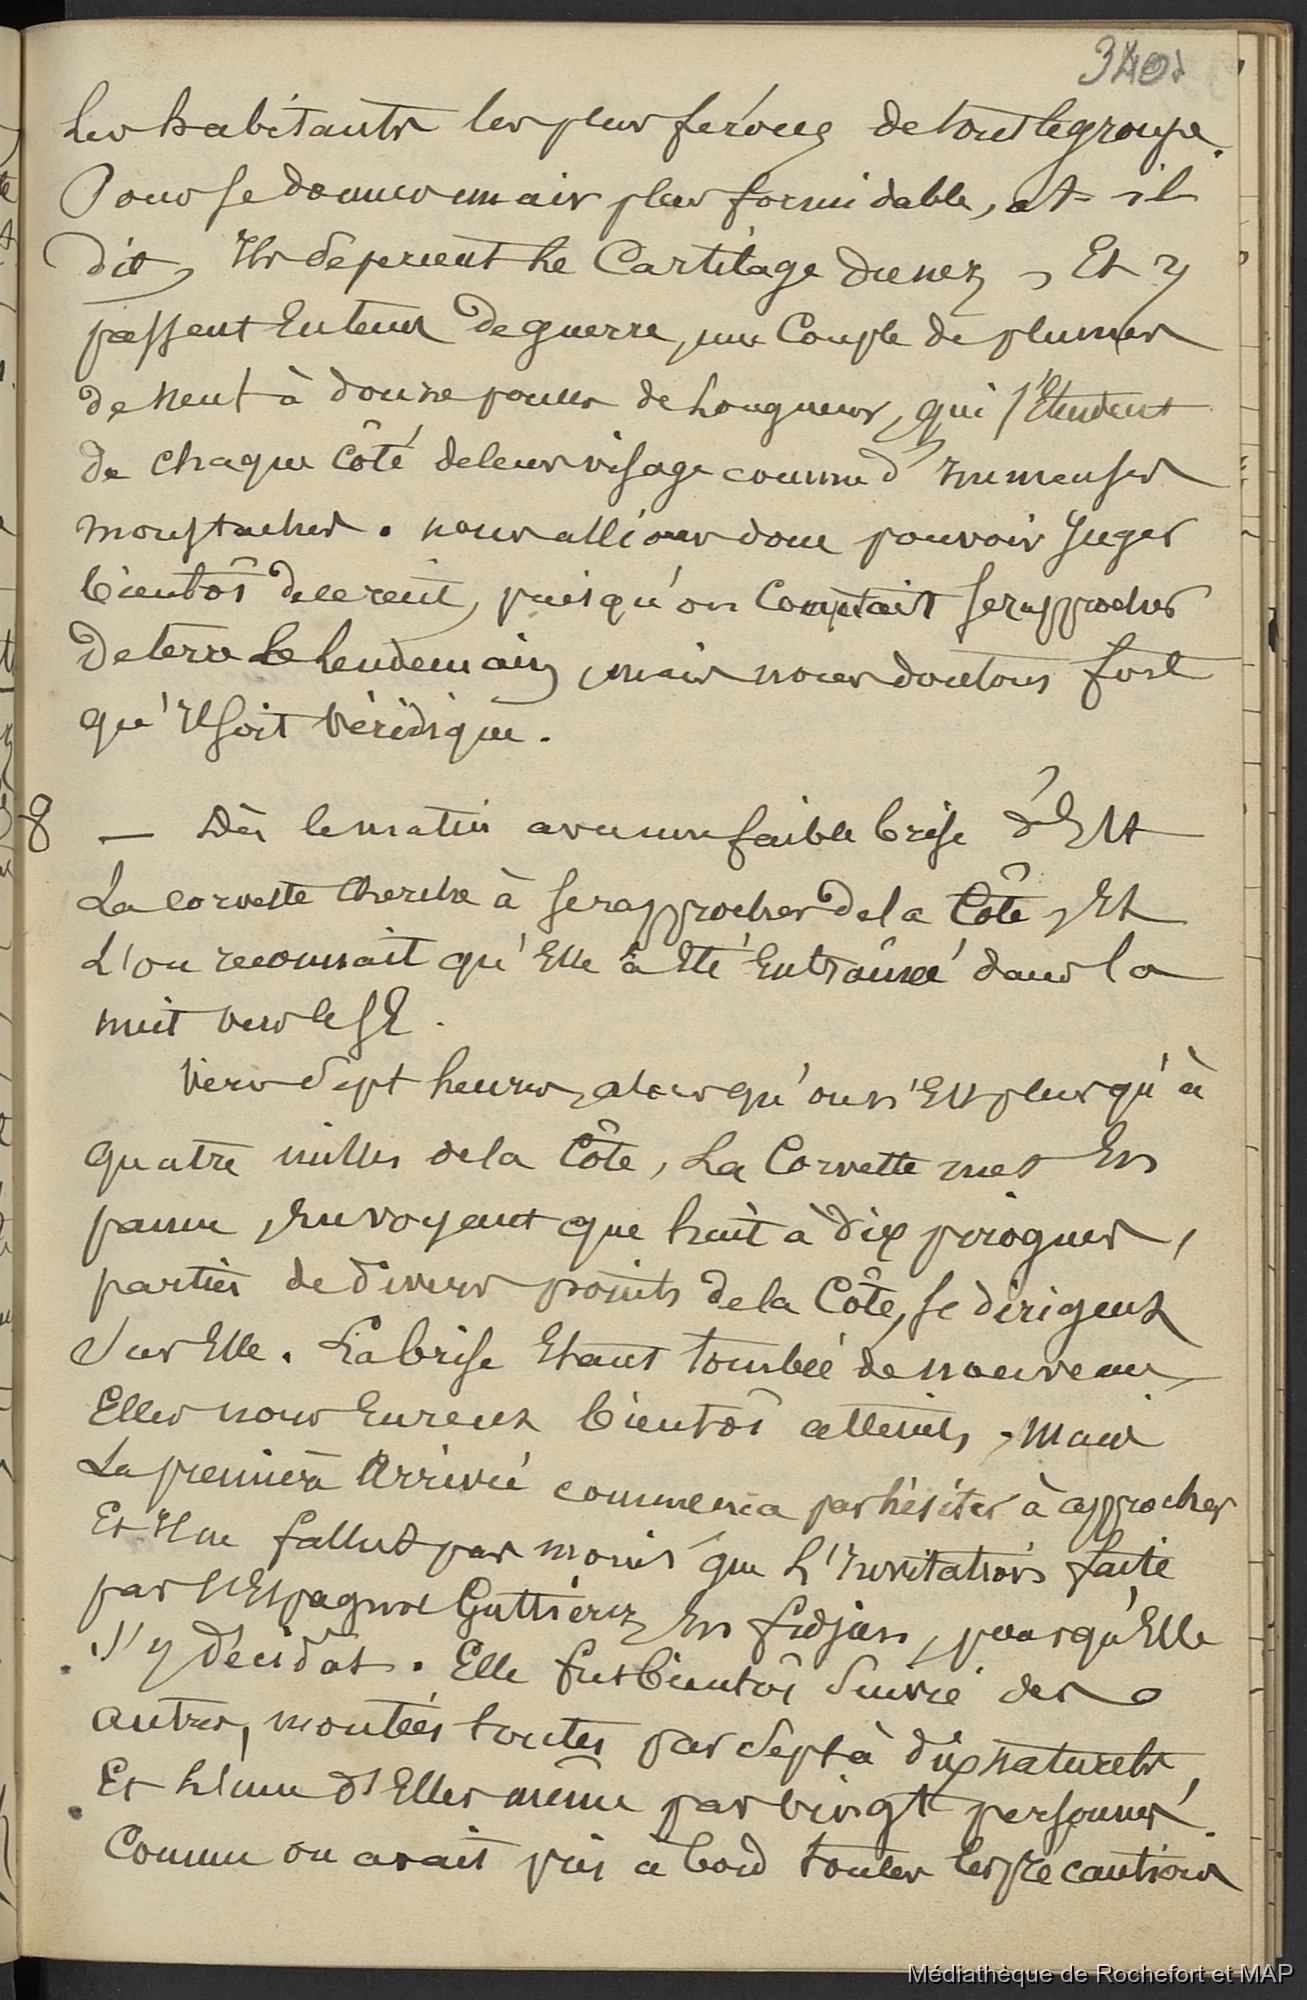 340
les habitants les plus féroces de tout le groupe.
Pour se donner un air plus formidable, a t- il
dit, Ils se percent le Cartilage du nez, Et y
passent En tems de guerre, une Couple de plumes
de neuf à douze pouces de Longueur, qui s'Etendent
de chaque Côté de leur visage comme d'Immenses
moustaches. nous allions donc pouvoir Juger
bientôt de ce récit, puisqu'on Comptait se rapprocher
de terre Le Lendemain, mais nous doutons fort
qu'Il soit Véridique.
8 — Dès le matin avec une faible brise d'Est
La corvette cherche à se rapprocher de la Côte, Et
L'on reconnait qu'Elle à Eté Entraînée dans la
nuit vers le SE.
Vers Sept heures, alors qu'on n'Est plus qu'à
quatre milles de la Côte, La Corvette met En
panne, En voyant que huit à dix pirogues,
parties de divers points de la Côte, se dirigent
Sur Elle. La brise Etant tombée de nouveau,
Elles nous Eurent bientôt atteints, Mais
La première Arrivée commença par hésiter à approcher
Et Il ne fallut pas moins que L'Invitation faite
par L'Espagnol Guttierez En fidjien, pour qu'Elle
s'y décidât. Elle fut bientôt Suivie des
autres, montées toutes par Sept à dix naturels,
Et L'une d'Elles même par vingt personnes.
Comme on avait pris à bord toutes les précautions
Médiathèque de Rochefort et MAP